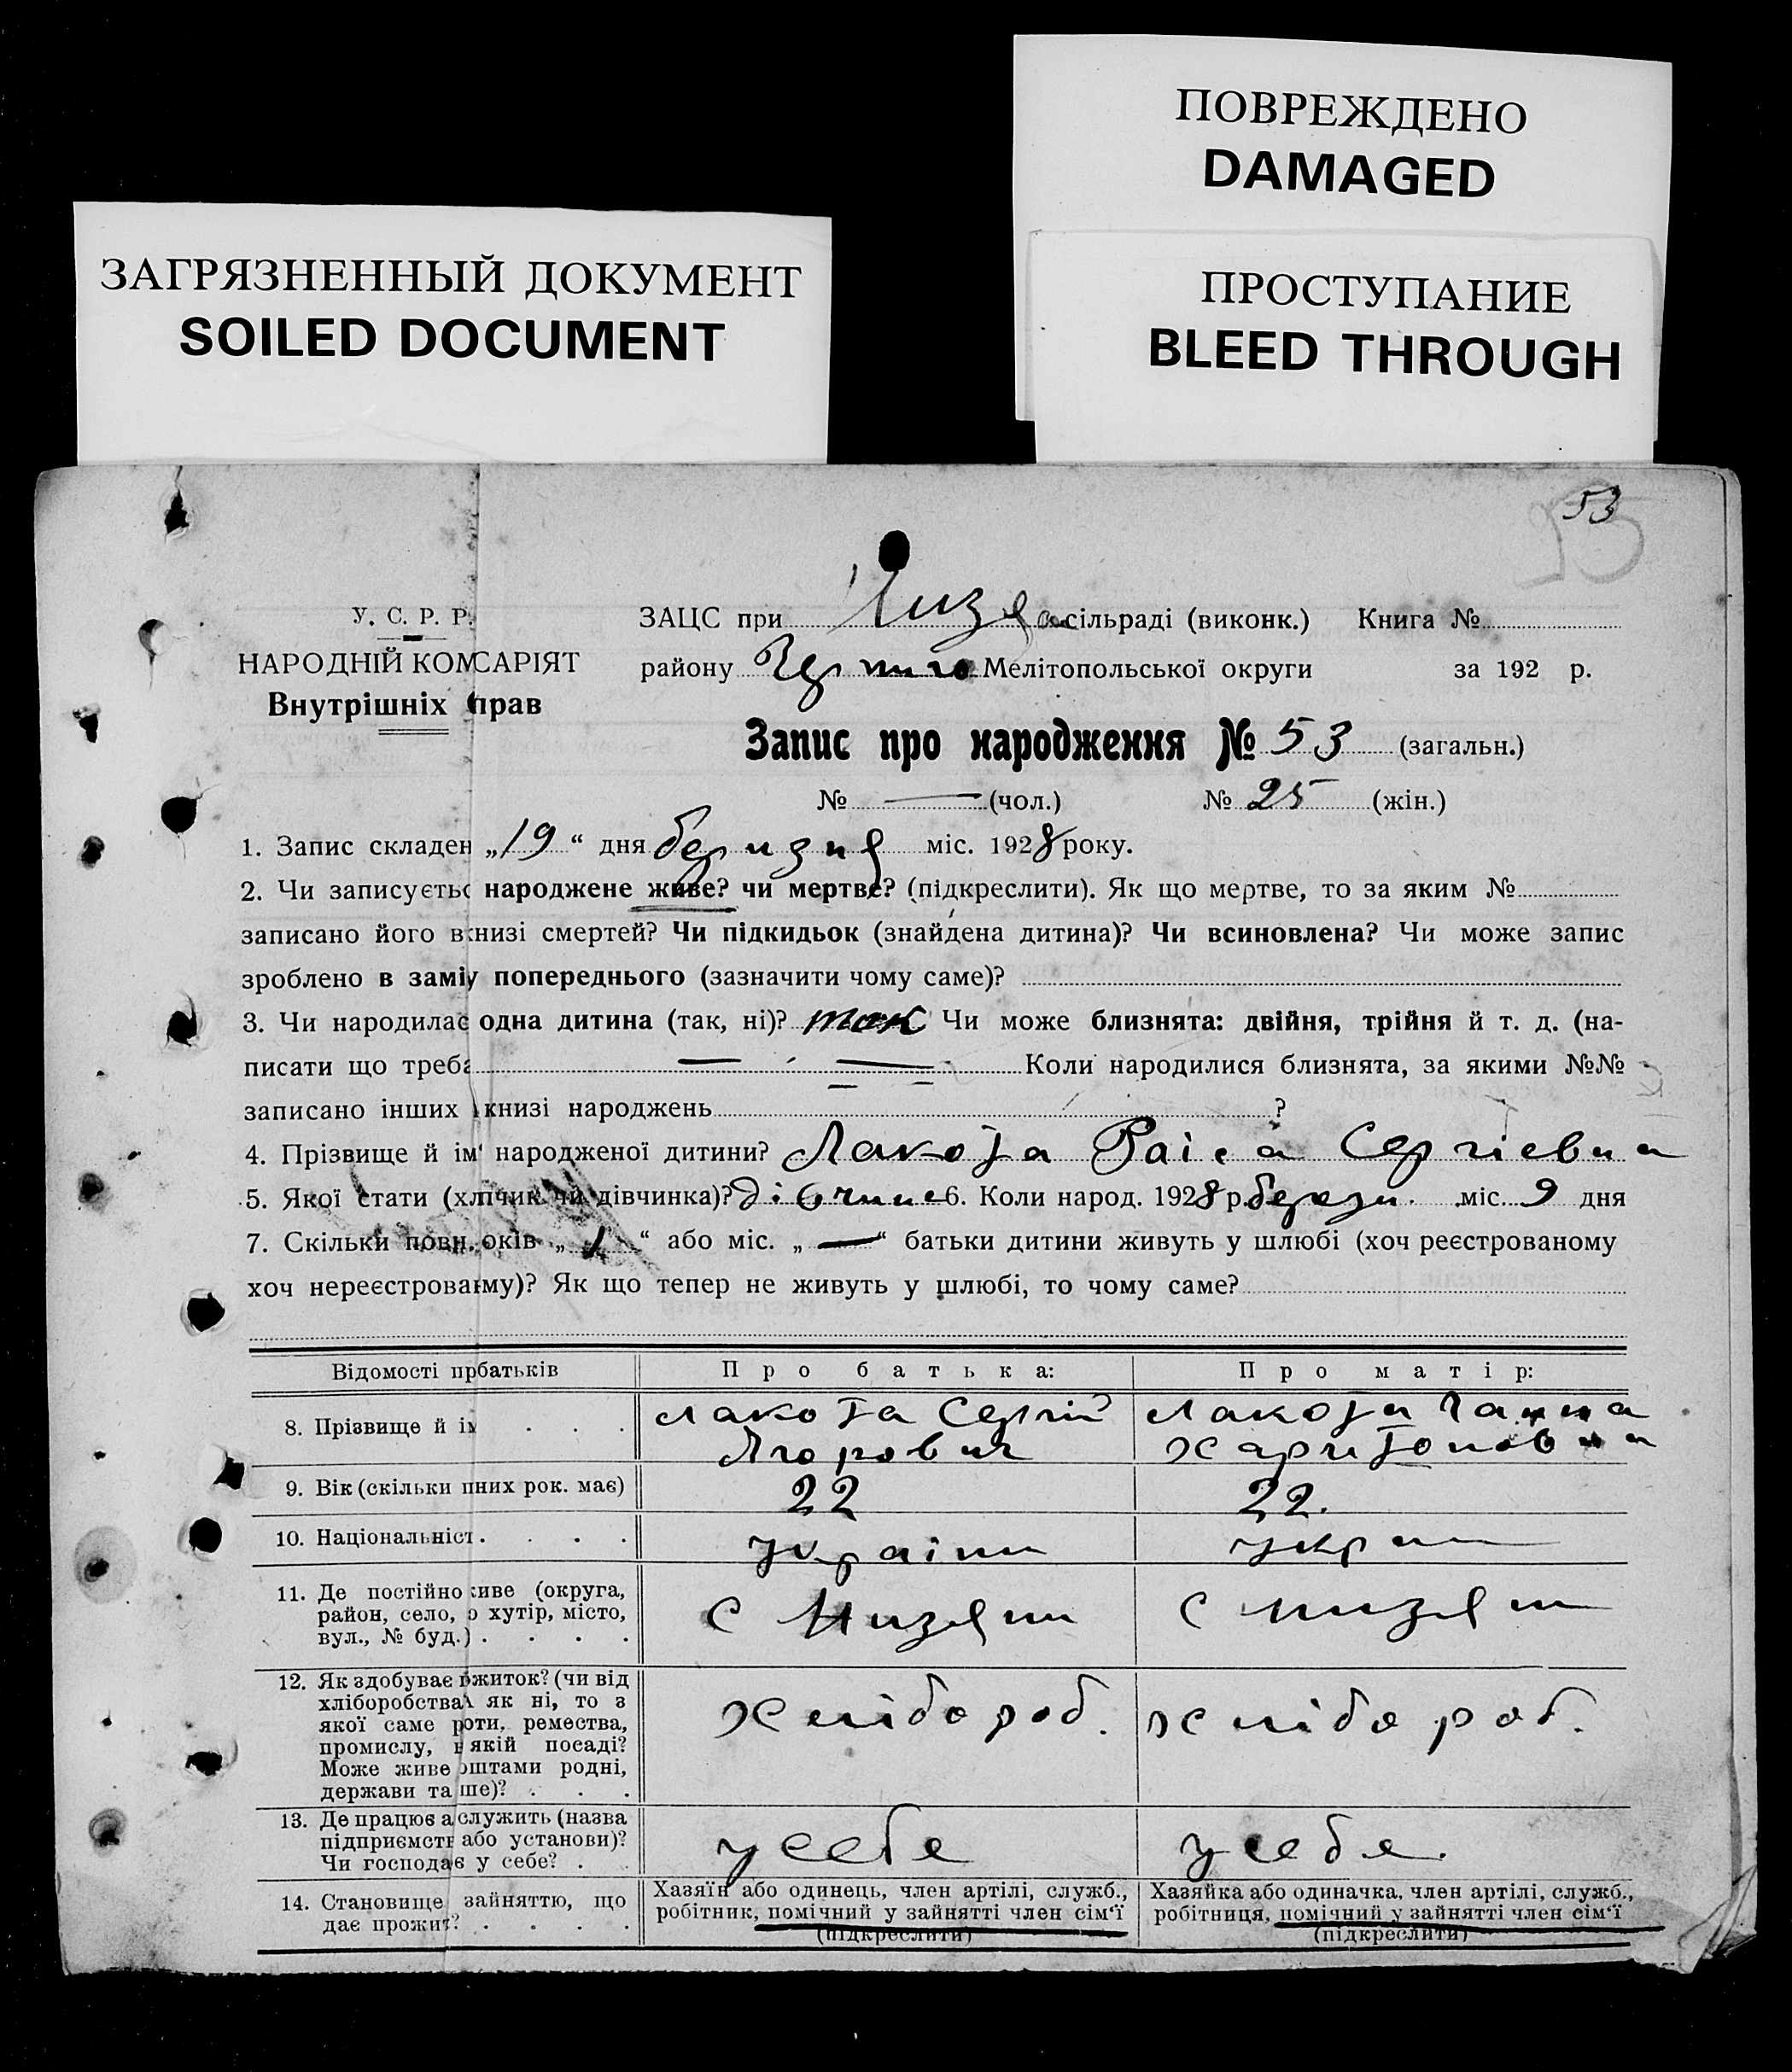 ПОВРЕЖДЕНО
DAMAGED
ЗАГРЯЗНЕННЫЙ ДОКУМЕНТ
SOILED DOCUMENT
ПРОСТУПАНИЕ
BLEED THROUGH
53
У. С. Р. Р.
НАРОДНІЙ КОМСАРІЯТ
Внутрішніх прав
ЗАЦС при сільраді (виконк.) Книга №
району Мелітопольської округи за 192 р.
Запис про народження № 53 (загальн.)
№ — (чол.) № 25 (жін.)
1. Запис складен „19“ дня березня міс. 1928 року.
2. Чи записуєтьс народжене живе? чи мертве? (підкреслити). Як що мертве, то за яким №
записано його в книзі смертей? Чи підкидьок (знайдена дитина)? Чи всиновлена? Чи може запис
зроблено в замі у попереднього (зазначити чому саме)?
3. Чи народилас одна дитина (так, ні)? так Чи може близнята: двійня, трійня й т. д. (на-
писати що треба — — Коли народилися близнята, за якими №№
записано інших книзі народжень ?
4. Прізвище й ім' народженої дитини? Лакота Раіса Сергіевна
5. Якої стати (хлпчик чи дівчинка)? дівчина 6. Коли народ. 1928 р. берези. міс. 9 дня
7. Скільки повн. оків „1“ або міс. „—“ батьки дитини живуть у шлюбі (хоч реєстрованому
хоч нереєстрованму)? Як що тепер не живуть у шлюбі, то чому саме?
Відомості прбатьків Про батька: Про матір:
8. Прізвище й ім . . . Лакота Сергій Лакота Ганна
Ягорович Харитоновна
9. Вік (скільки пних рок. має) 22 22.
10. Національніст . . . . україн укр
11. Де постійно живе (округа,
район, село, о хутір, місто,
вул., № буд.) . . . .
с Низяни с низян
12. Як здобуває вжиток? (чи від
хліборобства як ні, то з
якої саме роти, ремества,
промислу, в якій посаді?
Може живе оштами родні,
держави та ше)? . . .
хлібороб. хлібороб.
13. Де працює а служить (назва
підприємств або установи)?
Чи господає у себе? . .
у себе у себе.
14. Становище зайняттю, що
дає прожит? . . . .
Хазяїн або одинець, член артілі, служб.,
робітник, помічний у зайнятті член сім'ї
(підкреслити)
Хазяйка або одиначка, член артілі, служб.,
робітниця, помічний у зайнятті член сім'ї
(підкреслити)